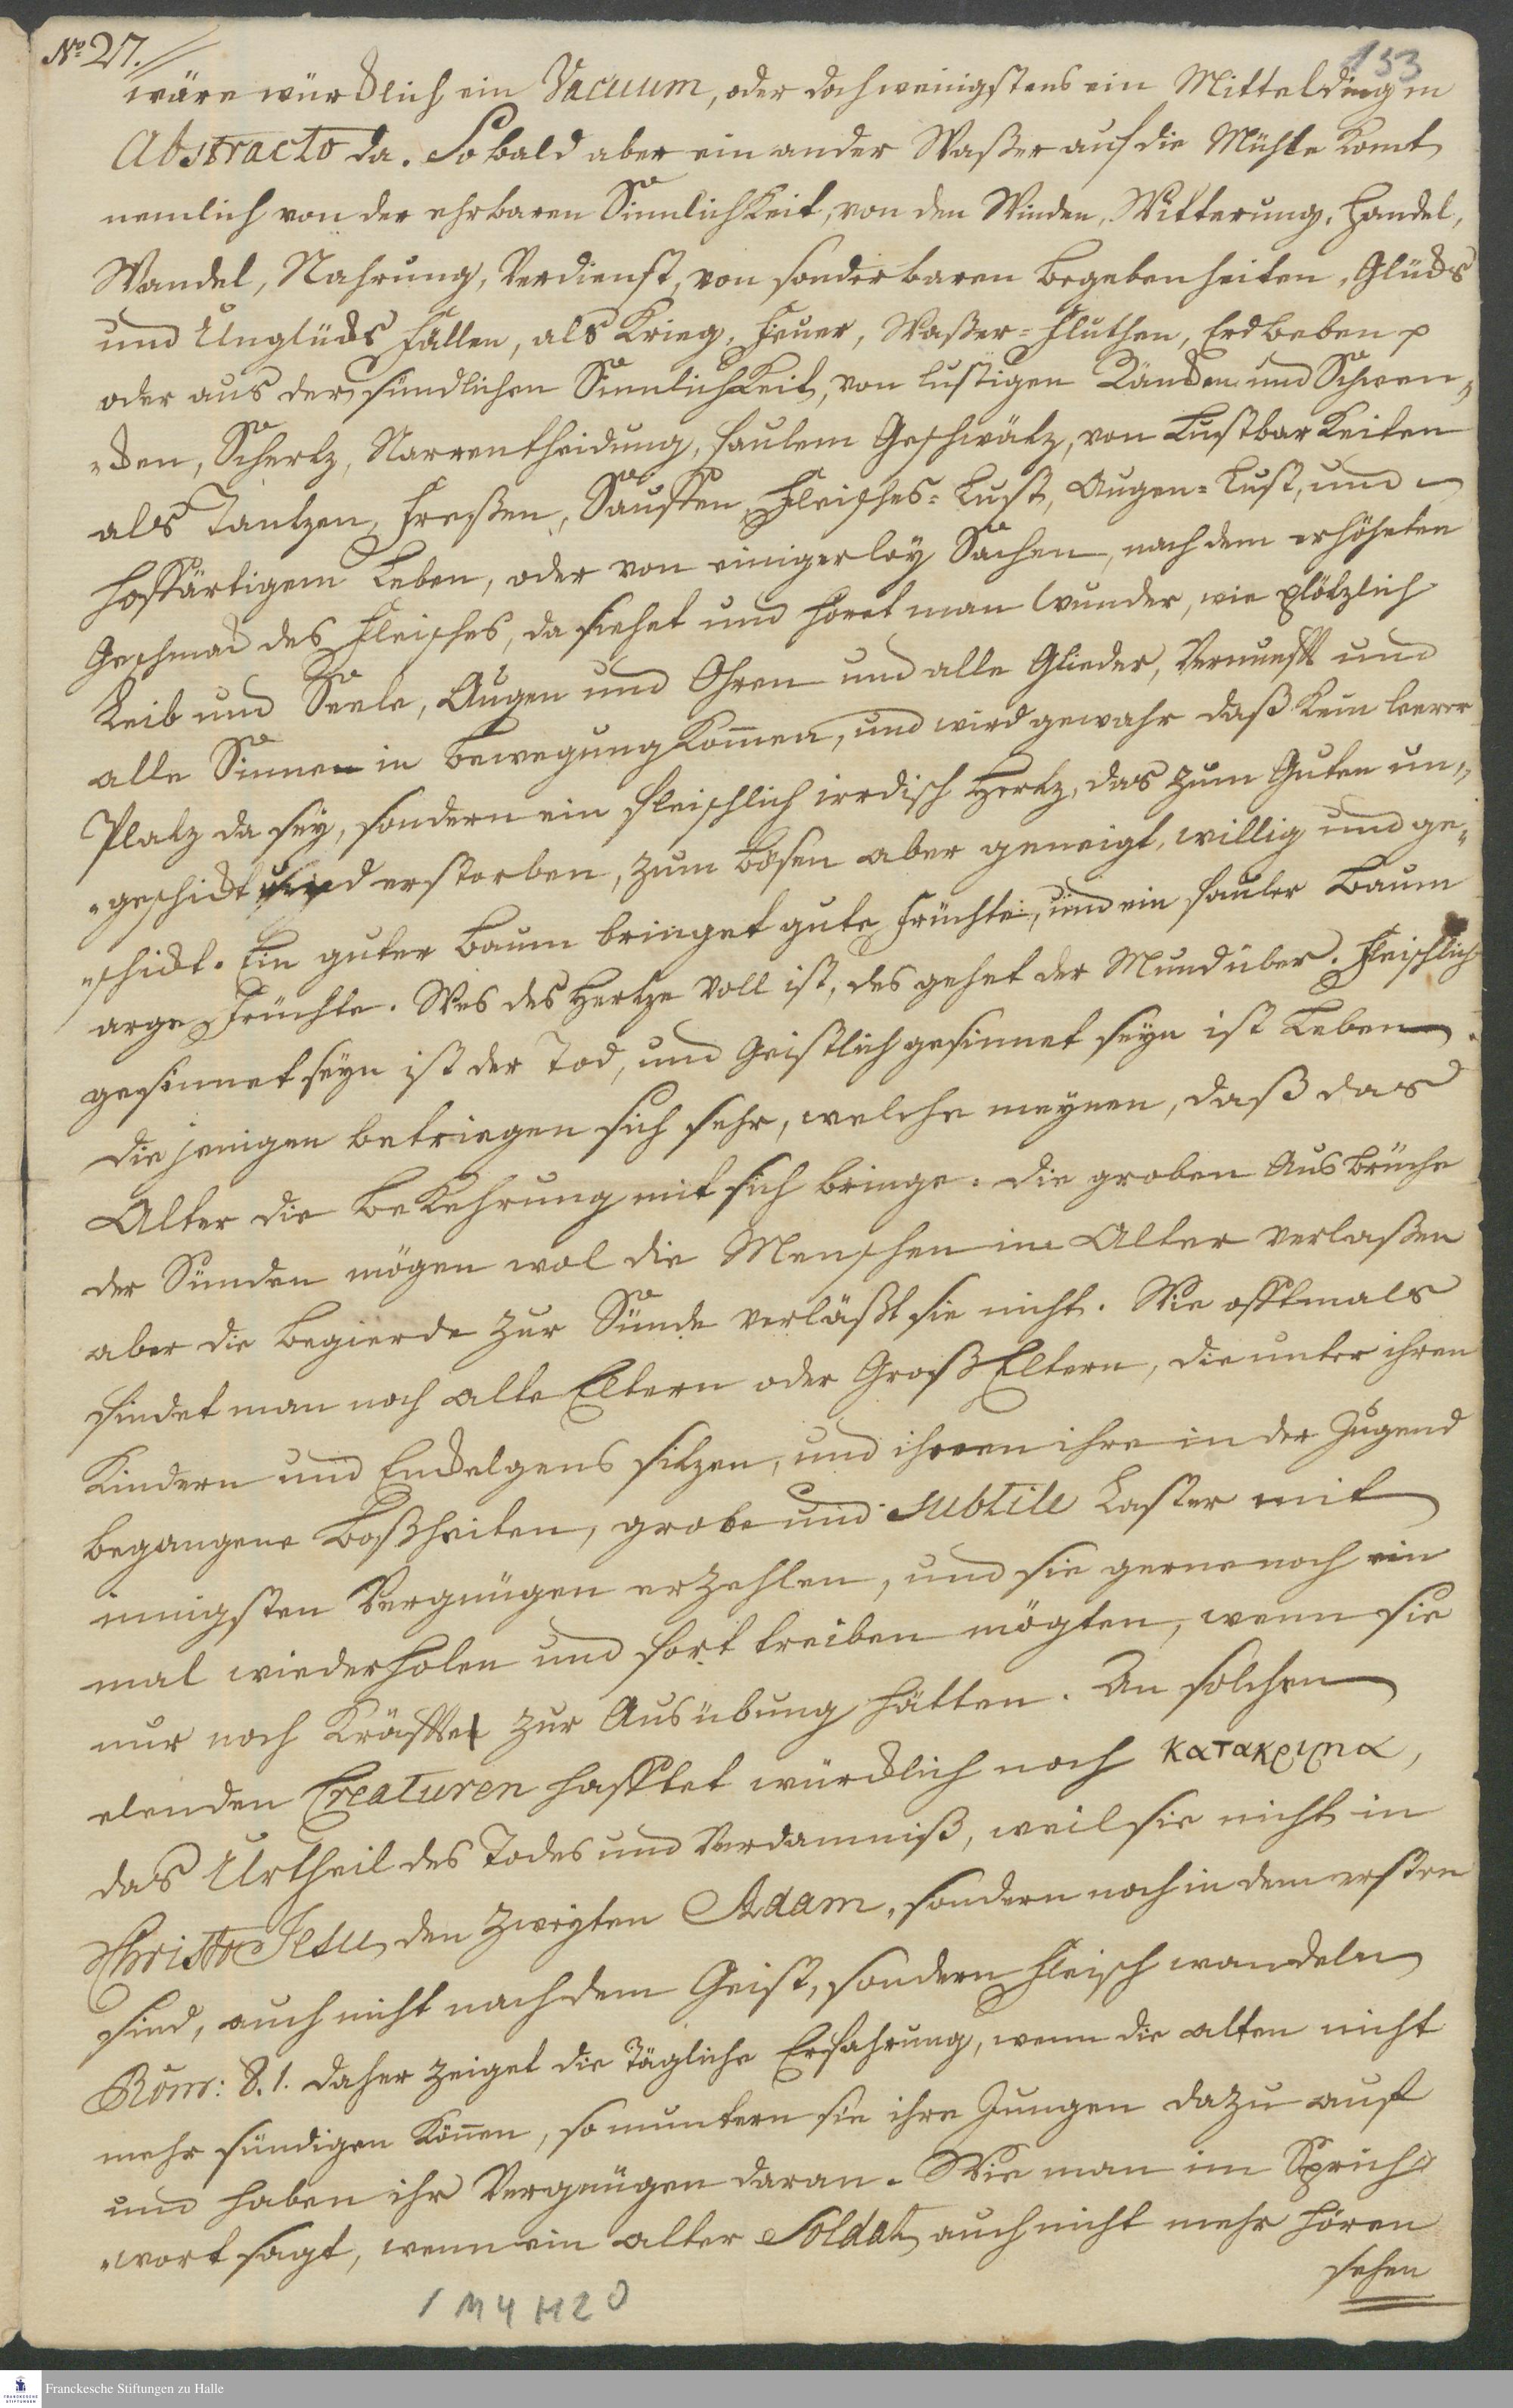 No 27.
153
wäre würcklich ein Vacuum, oder doch wenigstens ein Mittelding in
Abstracto da. So bald aber ein ander Waßer auf die Mühle komt
nemlich von der ehrbaren Sinnlichkeit, von den Winden, Witterung, Handel,
Wandel, Nahrung, Verdienst, von sonderbaren Begebenheiten, Glücks
und Unglücks Fällen, als Krieg, Feuer, Waßer-Fluthen, Erdbeben p
oder aus der sündlichen Sinnlichkeit, von lustigen Räncken und Schwen„
„cken, Schertz, Narrentheidung, faulem Geschwätz, von Lustbarkeiten
als Tantzen, Freßen, Sauffen, Fleisches-Lust, Augen-Lust, und
hoffärtigem Leben, oder von einigerley Sachen, nach dem erhöheten
Geschmack des Fleisches, da siehet und höret man Wunder, wie plötzlich
Leib und Seele, Augen und Ohren und alle Glieder, Vernunfft und
alle Sinnen in Bewegung kom̄en, und wird gewahr daß kein leerer
Platz da sey, sondern ein fleischlich irrdisch Hertz, das zum Guten un„
„geschickt und erstorben, zum Bösen aber geneigt, willig und ge„
„schickt. Ein guter Baum bringet gute Früchte, und ein fauler Baum
arge Früchte. Wes des Hertze voll ist, des gehet der Mund über. Fleischlich
gesinnet seyn ist der Tod, und Geistlich gesinnet seyn ist Leben.
diejenigen betriegen sich sehr, welche meynen, daß das
Alter die Bekehrung mit sich bringe. die groben Ausbrüche
der Sünden mögen wol die Menschen im Alter verlaßen
aber die Begierde zur Sünde verläßt sie nicht. Wie offtmals
findet man noch alte Eltern oder GroßEltern, die unter ihren
Kindern und Enckelgens sitzen, und ihnen ihre in der Jugend
begangene Boßheiten, grobe und subtile Laster mit
innigsten Vergnügen erzehlen, und sie gerne noch ein
mal wiederholen und fort treiben mögten, wenn sie
nur noch Kräffte zur Ausübung hätten. An solchen
elenden Creaturen hafftet würcklich noch κατακριμα,
das Urtheil des Todes und Verdamniß, weil sie nicht in
Christo Jesu, den zweyten Adam, sondern noch in dem ersten
sind, auch nicht nach dem Geist, sondern Fleisch wandeln
Röm: 8. 1. daher zeiget die tägliche Erfahrung, wenn die alten nicht
mehr sündigen kön̄en, so muntern sie ihre Jungen dazu auf
und haben ihr Vergnügen daran. Wie man im Sprich„
„wort sagt, wenn ein alter Soldat auch nicht mehr hören
sehen
1 M 4 H 20
Franckesche Stiftungen zu Halle